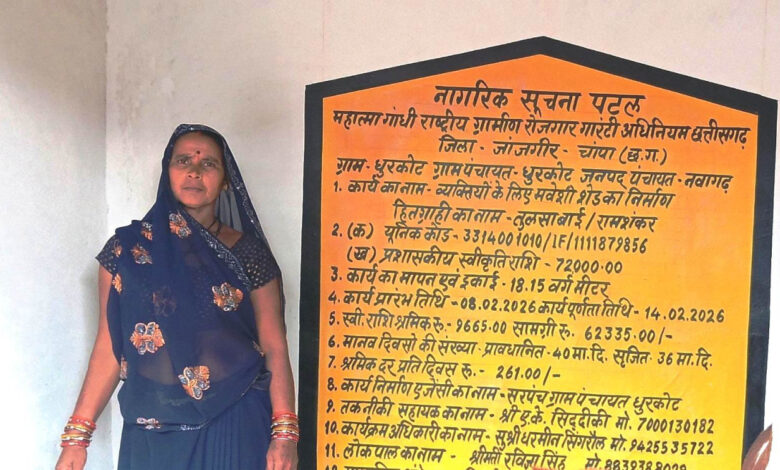 नागरिक सूचना पटल
महात्मा गांधी राष्ट्रीय ग्रामीण रोजगार गारंटी अधिनियम छत्तीसगढ़
जिला - जांजगीर - चांपा (छ.ग.)
ग्राम - धुरकोट ग्राम पंचायत - धुरकोट जनपद पंचायत - नवागढ़
1. कार्य का नाम - व्यक्तियों के लिए मवेशी शेड का निर्माण
हितग्राही का नाम - तुलसाबाई / रामशंकर
2. (क) यूनिक कोड - 3314001010/IF/1111879856
(ख) प्रशासकीय स्वीकृति राशि - 72000.00
3. कार्य का मापन एवं इकाई - 18.15 वर्ग मीटर
4. कार्य प्रारंभ तिथि - 08.02.2026 कार्य पूर्णता तिथि - 14.02.2026
5. स्वी. राशि श्रमिक रु. - 9665.00 सामग्री रु. 62335.00/-
6. मानव दिवसो की संख्या - प्रावधानित - 40 मा.दि. सृजित - 36 मा.दि.
7. श्रमिक दर प्रति दिवस रु. - 261.00/-
8. कार्य निर्माण एजेंसी का नाम - सरपंच ग्राम पंचायत धुरकोट
9. तकनीकी सहायक का नाम - श्री ए.के. सिद्दीकी मो. 7000130182
10. कार्यक्रम अधिकारी का नाम - सुश्री धरमीन सिंगरौल मो. 9425535722
11. लोकपाल का नाम - श्रीमती रविजा सिंह मो.